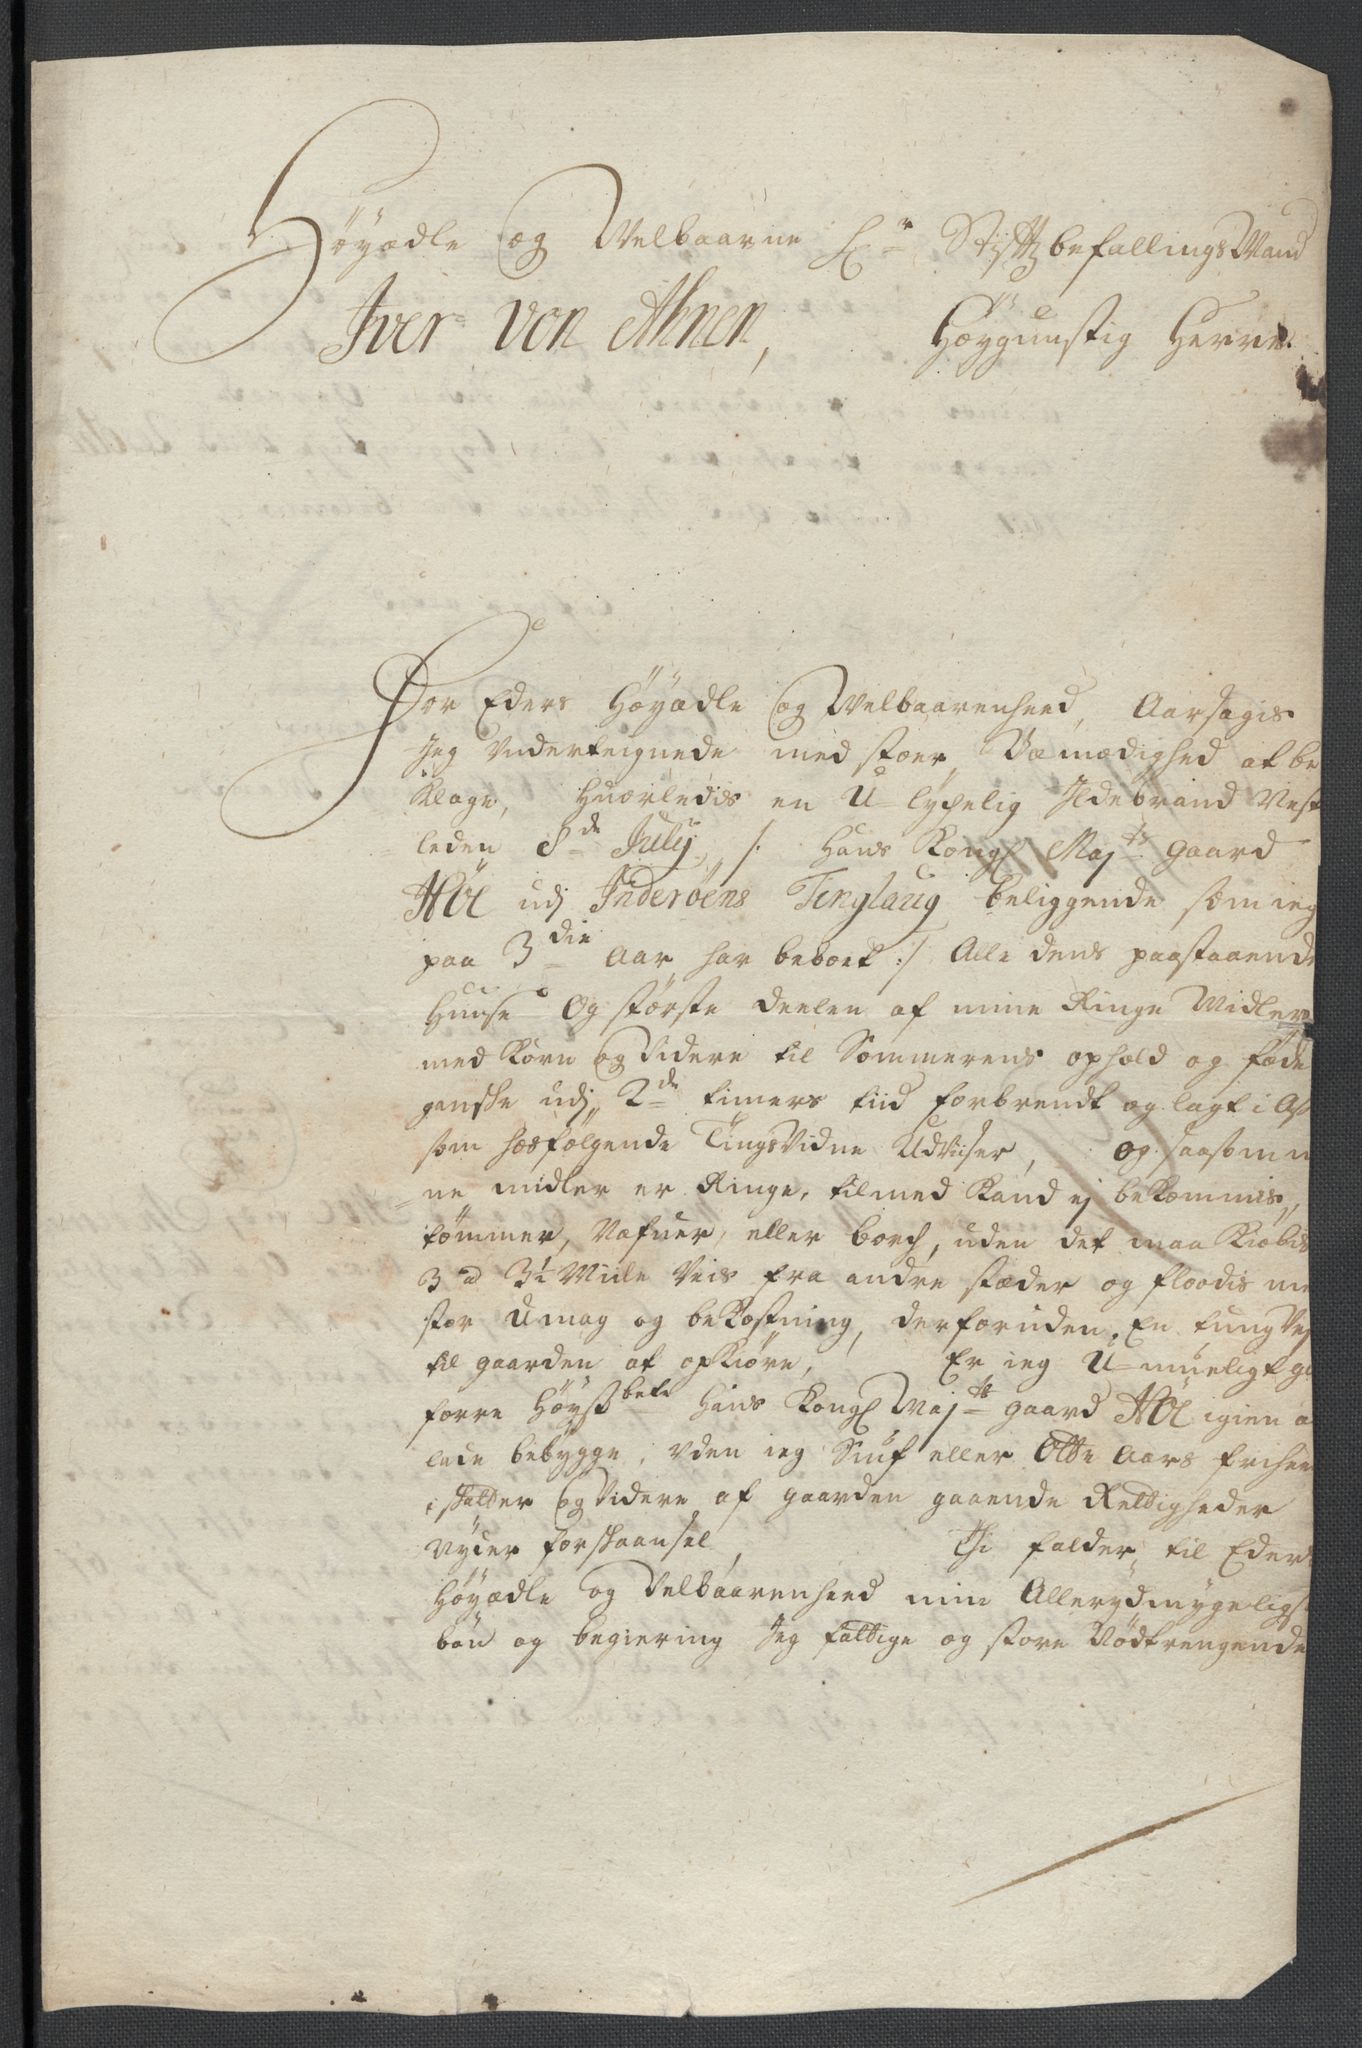 Höyædle og Welbaarne Hr Stiftbefallings Mand
Iver von Ahnen, Høygunstig Herre.
For Eders Höyædle og Welbaarenheed, Aarsagis
Jeg Underteignede med stoer Vemædighed at be
klage, huorledis en U-lychelig Ildebrand Nest
leden 8de Julij, /: Hans Kongl Majts gaard
Hol udj Inderøens Tinglaug beliggende som ieg
paa 3die aar har beboet :/ Alle dens paastaaende
Huuse Og störste deelen af mine Ringe Midler
med Korn og Videre til Sommerens ophold og føde
gansche udj 2de timers tiid forbrendt og lagt i Ask
som hosfölgende TingsVidne Udviiser, og saasom mi
ne midler er Ringe, tilmed kand ej bekommis
tömmer, Nefuer, eller borch, uden det maa Kiøbis
3 à 3½ Miile Veis fra andre stæder og floedis med
stor Umag og bekostning, derforuden En tung Vej
til gaarden at opkiöre, Er ieg U-mueligt
forre Höystbete Hans Kongl Majts gaard Hol igien
lade bebygge, uden ieg Siuf eller Otte Aars frihed
i skatter og Videre af gaarden gaaende Rettigheder
Nyder forskaansel, Thi falder til Eders
Höyædle og Velbaarenheed min Allerydmygeligst
bön og begiering Jeg fattige og store Nödtrengende